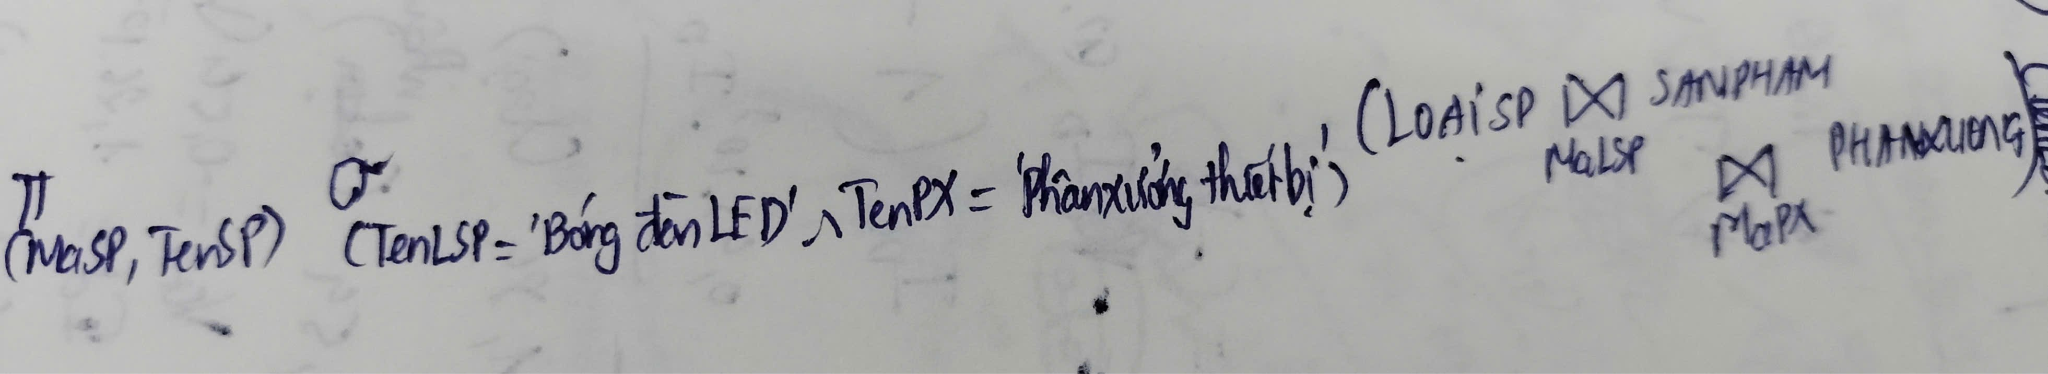 π (MaSP, TenSP) σ (TenLSP = 'Bóng đèn LED' ∧ TenPX = 'Phân xưởng thiết bị') (LOAiSP ⋈ MaLSP SANPHAM ⋈ MaPX PHANXUONG)